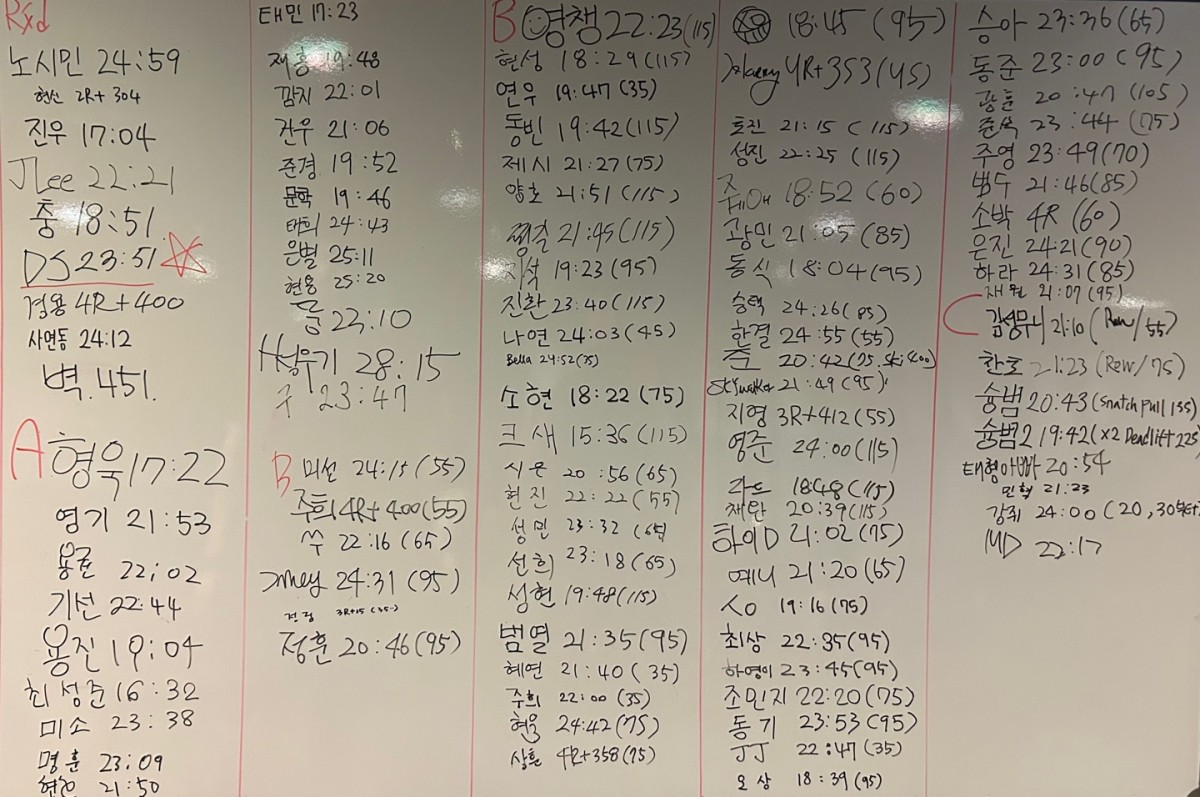 Rxd
노시민 24:59
현선 2R+304
진우 17:04
JLee 22:21
충 18:51
DS 23:51
경용 4R+400
사연동 24:12
벽. 451.
A 형욱 17:22
영기 21:53
용준 22:02
기선 22:44
용진 19:04
최성준 16:32
미소 23:38
명훈 23:09
21:50
태민 17:23
재홍 19:48
깜지 22:01
건우 21:06
준경 19:52
문학 19:46
태희 24:43
은별 25:11
현웅 25:20
23:10
28:15
구 23:47
B 미선 24:15 (55)
주희 4R+400 (55)
쑤 22:16 (65)
24:31 (95)
3R+15
정훈 20:46 (95)
B 영쟁 22:23 (115)
현성 18:29 (115)
연우 19:47 (35)
동빈 19:42 (115)
제시 21:27 (75)
양호 21:51 (115)
21:45 (115)
지석 19:23 (95)
진환 23:40 (115)
나연 24:03 (45)
Bella 24:52 (35)
소현 18:22 (75)
크새 15:36 (115)
시온 20:56 (65)
현진 22:22 (55)
성민 23:32
선희 23:18 (65)
성현 19:48 (115)
범열 21:35 (95)
혜연 21:40 (35)
주희 22:00 (35)
현욱 24:42 (75)
상훈 4R+358 (75)
18:45 (95)
Harry 4R+353 (45)
효진 21:15 (115)
성진 22:25 (115)
18:52 (60)
광민 21:05 (85)
동식 18:04 (95)
승택 24:26 (85)
한결 24:55 (55)
20:42
Skywalker 21:49 (95)
지영 3R+412 (55)
영준 24:00 (115)
라드 18:48 (115)
채완 20:39 (115)
하이D 21:02 (75)
예니 21:20 (65)
19:16 (75)
최상 22:35 (95)
하영이 23:45 (95)
조민지 22:20 (75)
동기 23:53 (95)
JJ 22:47 (35)
오상 18:39 (95)
승아 23:36 (65)
동준 23:00 (95)
광훈 20:47 (105)
준석 23:44 (75)
주영 23:49 (70)
범수 21:46 (85)
소박 4R (60)
은진 24:21 (90)
하라 24:31 (85)
재원 21:07 (95)
21:10 (Row/55)
찬호 21:23 (Row/75)
슝범 20:43 (Snatch pull 135)
슝범2 19:42 (x2 Deadlift 225)
태형아빠 20:54
민형 21:23
강쥐 24:00
MD 22:17